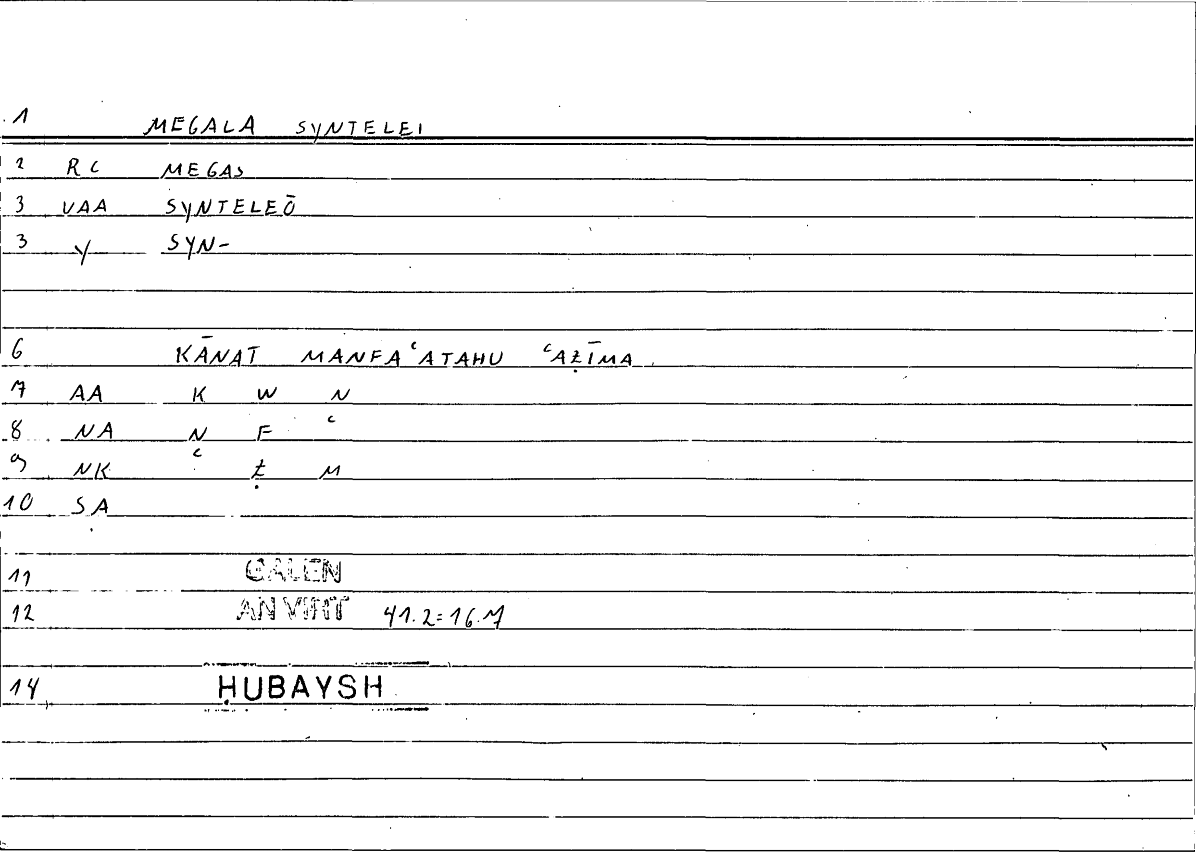 1 MEGALA SYNTELEI
2 RC MEGAS
3 VAA SYNTELEŌ
3 Y SYN-
6 KĀNAT MANFAʿATAHU ʿAẒĪMA
7 AA K W N
8 NA N F ʿ
9 NK ʿ Ẓ M
10 SA
11 GALEN
12 AN VIRT 41.2=16.7
14 ḤUBAYSH